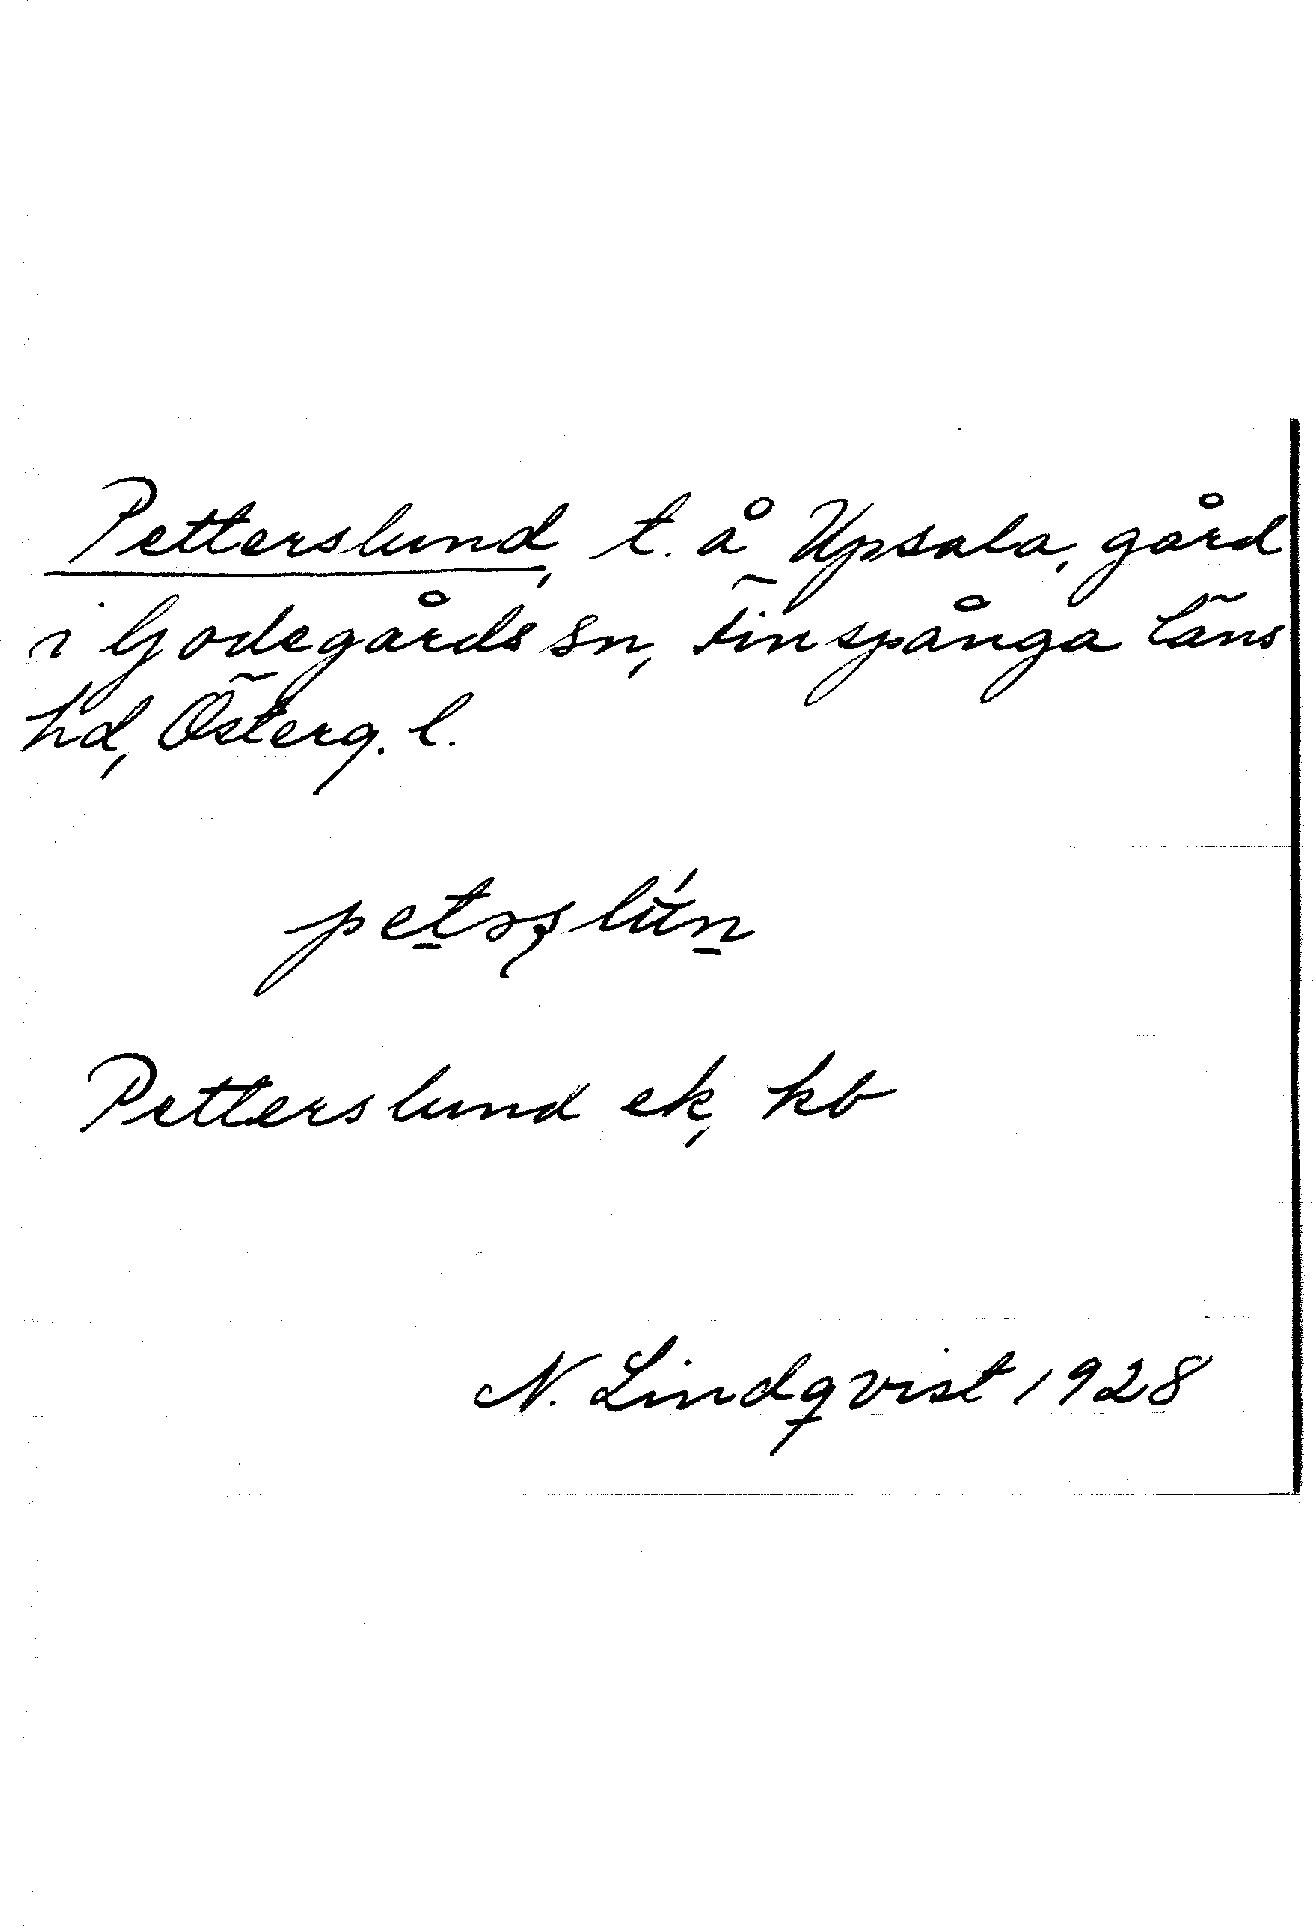 Petterslund, t. å Upsala, gård
i Godegårds sn, Finspånga läns
hd, Österg. l.
Petterslund ek, kb
N. Lindqvist 1928